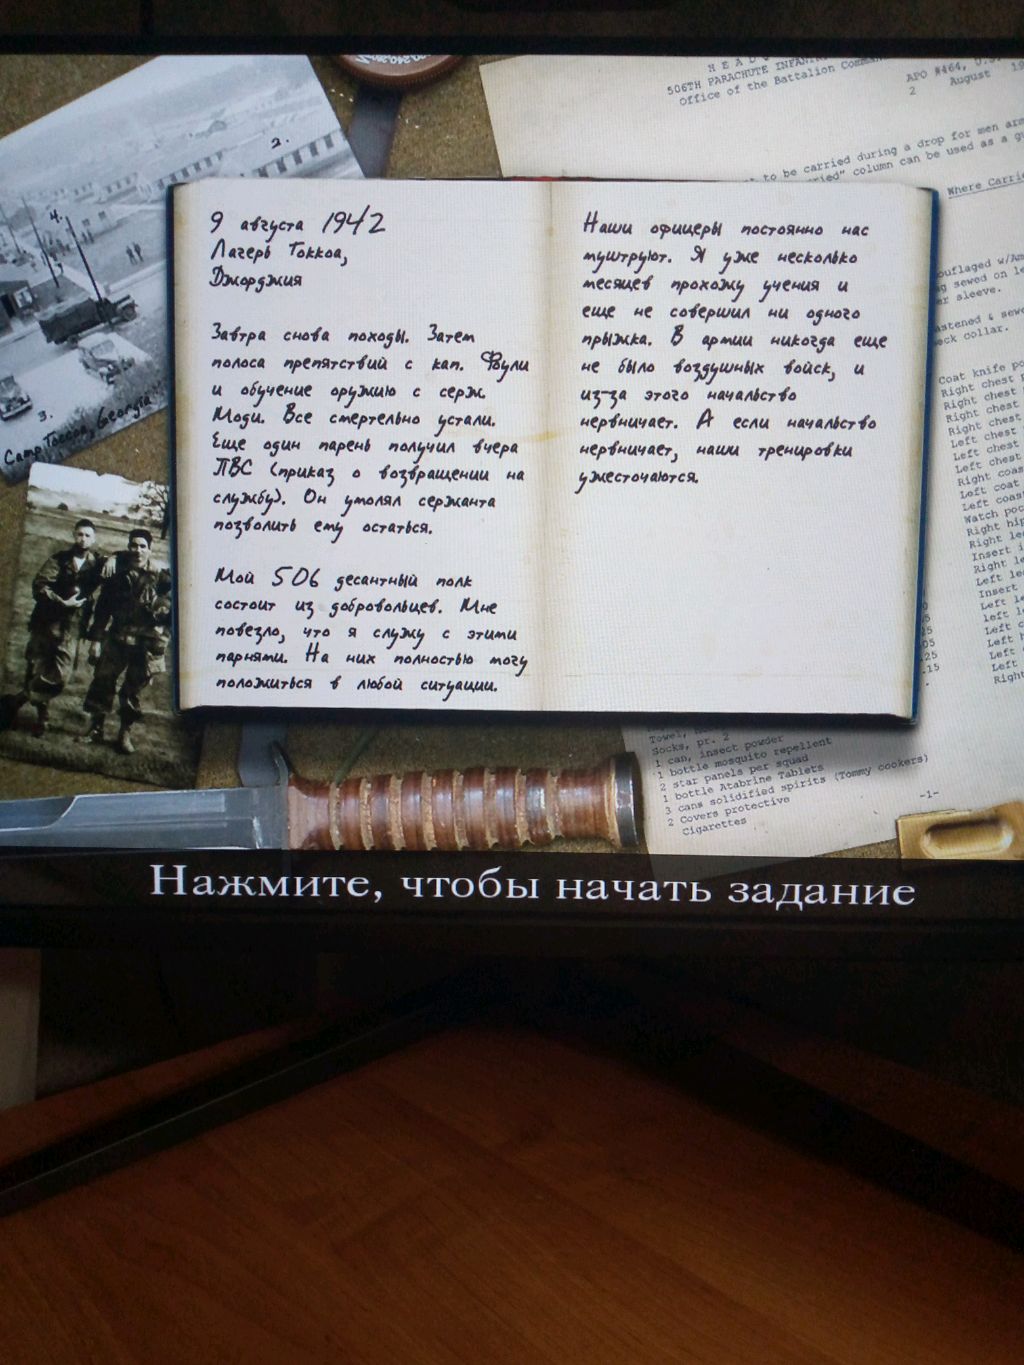 2.
4.
3.
Camp Toccoa, Georgia
506TH PARACHUTE
Office of the Battalion
APO #464, U.S.
2 August 19
to be carried during a drop for men
column can be used as a
Where Carrie
9 августа 1942
Лагерь Токкоа,
Джорджия
Завтра снова походы. Затем
полоса препятствий с кап. Фоули
и обучение оружию с серж.
Моди. Все смертельно устали.
Еще один парень получил вчера
ПВС (приказ о возвращении на
службу). Он умолял сержанта
позволить ему остаться.
Мой 506 десантный полк
состоит из добровольцев. Мне
повезло, что я служу с этими
парнями. На них полностью могу
положиться в любой ситуации.
Наши офицеры постоянно нас
муштруют. Я уже несколько
месяцев прохожу учения и
еще не совершил ни одного
прыжка. В армии никогда еще
не было воздушных войск, и
из-за этого начальство
нервничает. А если начальство
нервничает, наши тренировки
ужесточаются.
ouflaged w/Am
g sewed on le
er sleeve.
astened & sewe
eck collar.
Coat knife po
Right chest p
Right chest
Right chest
Right chest
Left chest
Left chest
Left chest
Right coa
Left coat
Left coas
Watch poc
Right hip
Right le
Insert i
Right le
Left le
Insert
Left le
left l
Left c
Left
Left
Right
Towel,
Socks, pr. 2
1 can, insect powder
1 bottle mosquito repellent
2 star panels per squad
1 bottle Atabrine Tablets
3 cans solidified spirits (Tommy cookers)
2 Covers protective
Cigarettes
-1-
Нажмите, чтобы начать задание